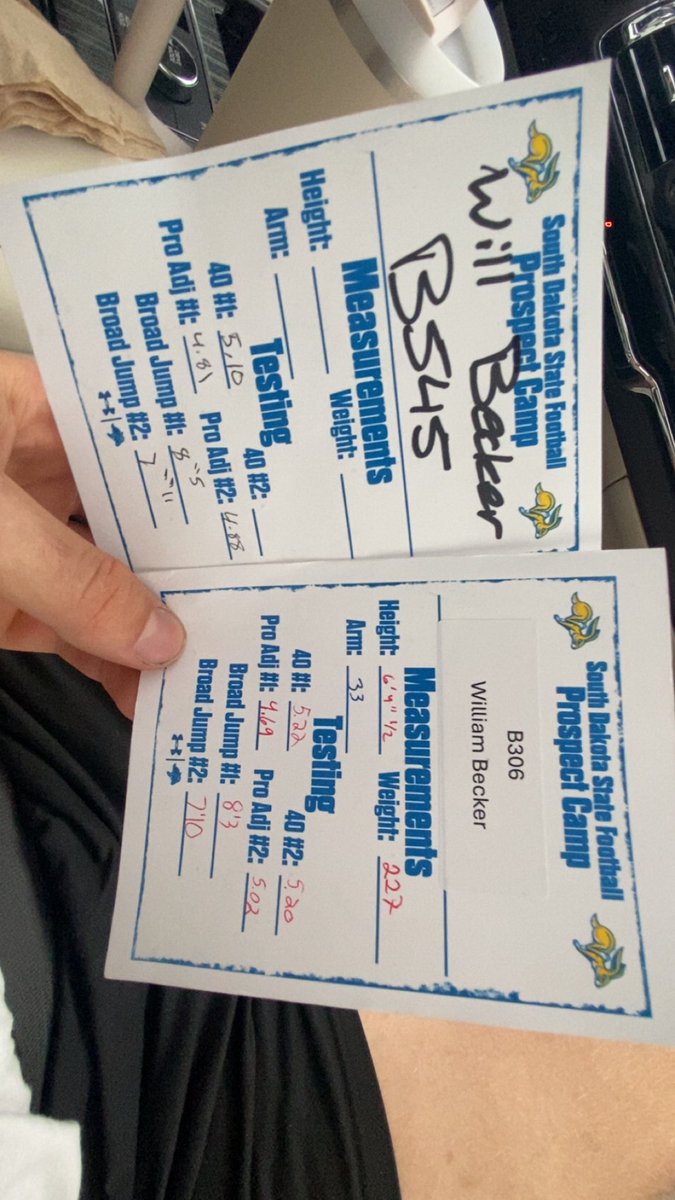 South Dakota State Football
Prospect Camp
Will Becker
B545
Measurements
Height: Weight:
Arm:
Testing
40 #1: 5.10 40 #2:
Pro Adj #1: 4.81 Pro Adj #2: 4.88
Broad Jump #1: 8"5
Broad Jump #2:
South Dakota State Football
Prospect Camp
B306
William Becker
Measurements
Height: 6'4" 1/2 Weight: 227
Arm: 33
Testing
40 #1: 5.22 40 #2: 5.20
Pro Adj #1: 4.69 Pro Adj #2: 5.02
Broad Jump #1: 8'3
Broad Jump #2: 7'10